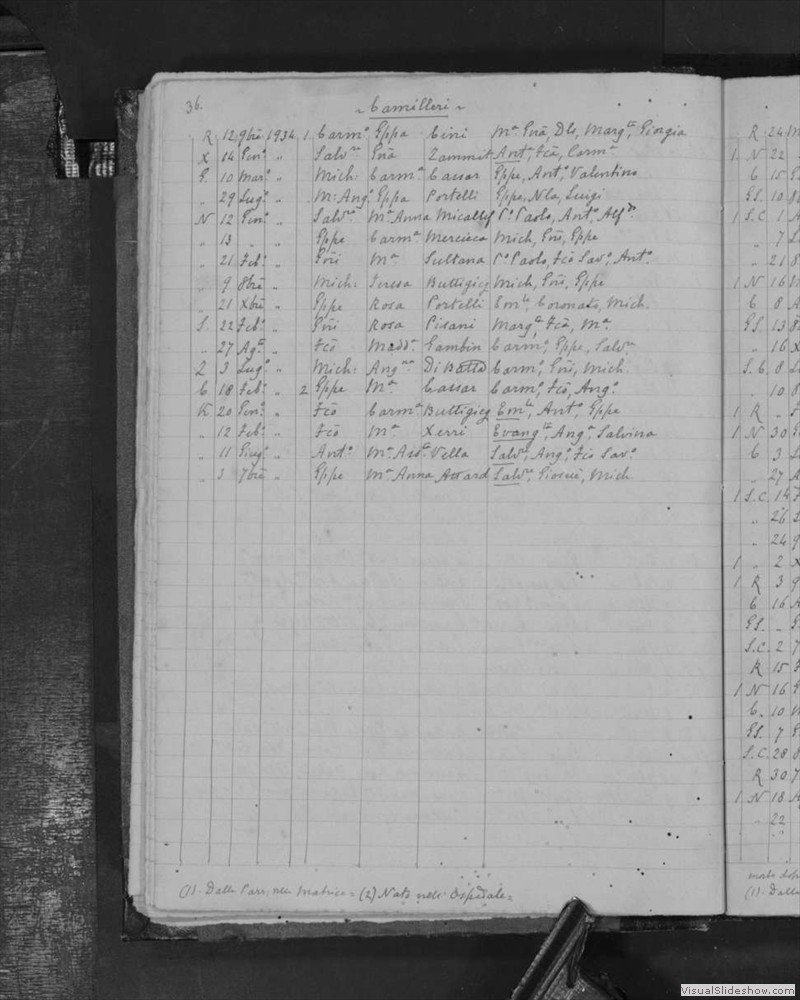 36.
~ Camilleri ~
R 12 9bre 1934 1. Carmo. Eppa Cini Ma. Gnã, Dlo, Margta, Giorgia
X 14 Genº " Salvre Gnã Zammit Antª, Fcã, Carmª
G. 10 Marº " Mich: Carmª Cassar Eppe, Antº, Valentino
" 29 Lugº " M: Angº Eppa Portelli Eppe, Nla, Luigi
N 12 Genº " Salvre Mª Anna Micallef Pº Paolo, Antº, Alfdo
" 13 " " Eppe Carmª Mercieca Mich, Gñi, Eppe
" 21 Febº " Gñi Mª Sultana Pº Paolo, Fcõ Savº, Antº
" 9 8bre " Mich: Teresa Buttigieg Mich, Gñi, Eppe
" 21 Xbre " Eppe Rosa Portelli Emle, Coronato, Mich.
S. 22 Febº " Gñi Rosa Pisani Margta, Fcã, Mª
" 27 Agº " Fcõ Maddª Gambin Carmº, Eppe, Salvre
Z 3 Lugº " Mich: Di Carmº, Gñi, Mich.
C 18 Febº " 2 Eppe Mª Cassar Carmº, Fcõ, Angº
K 20 Genº " Fcõ Carmª Buttigieg Emle, Antº, Eppe
" 12 Febº " Fcõ Mª Xerri Evangta, Angª, Salvina
" 11 Giugº " Antº Mª Assta Vella Salvre, Angº, Fcõ Savº
" 3 7bre " Eppe Mª Anna Attard Salvre, Giosuè, Mich
(1)- Dalla Parr: nella Matrice = (2) Nato nell' Ospedale =
R 24
1 N 22
C 15
GS. 10
1 S.C 1
" 7
" 21
1 N 16
C 8
GS. 13
" 16
S.C. 8
" 10
1 R "
1 N 30
C 3
" 27
1 S.C. 14
" 26
" 24
1 " 2
1 R 3
C 16
GS. "
S.C. 2
R 15
1 N 16
C. 10
GS. 7
S.C. 28
R 30
1 N 18
" 22
(1)- Dalla
VisualSlideshow.com